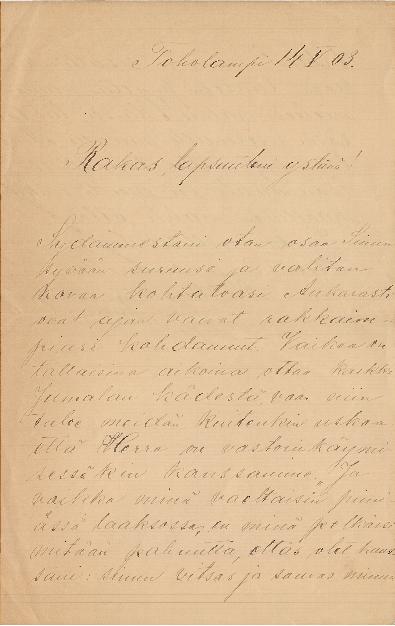 Toholampi 14 V 03.
Rakas, lapsuuteni ystävä!
Sydämmestäni otan osaa Sinun
syvään suruusi ja valitan
kovaa kohtaloasi Ankarasti
ovat ajan vaivat rakkaim-
piasi kohdanneet. Vaikea on
tällaisina aikoina ottaa kaikki
Jumalan kädestä, vaan niin
tulee meidän kuitenkin uskoa
että Herra on vastoinkäymi
sessäkin kanssamme. "Ja
vaikka minä vaeltaisin pimi-
ässä laaksossa, en minä pelkäisi
mitään pahuutta, sillä olet kans-
sani: sinun vitsas ja sauvas minun